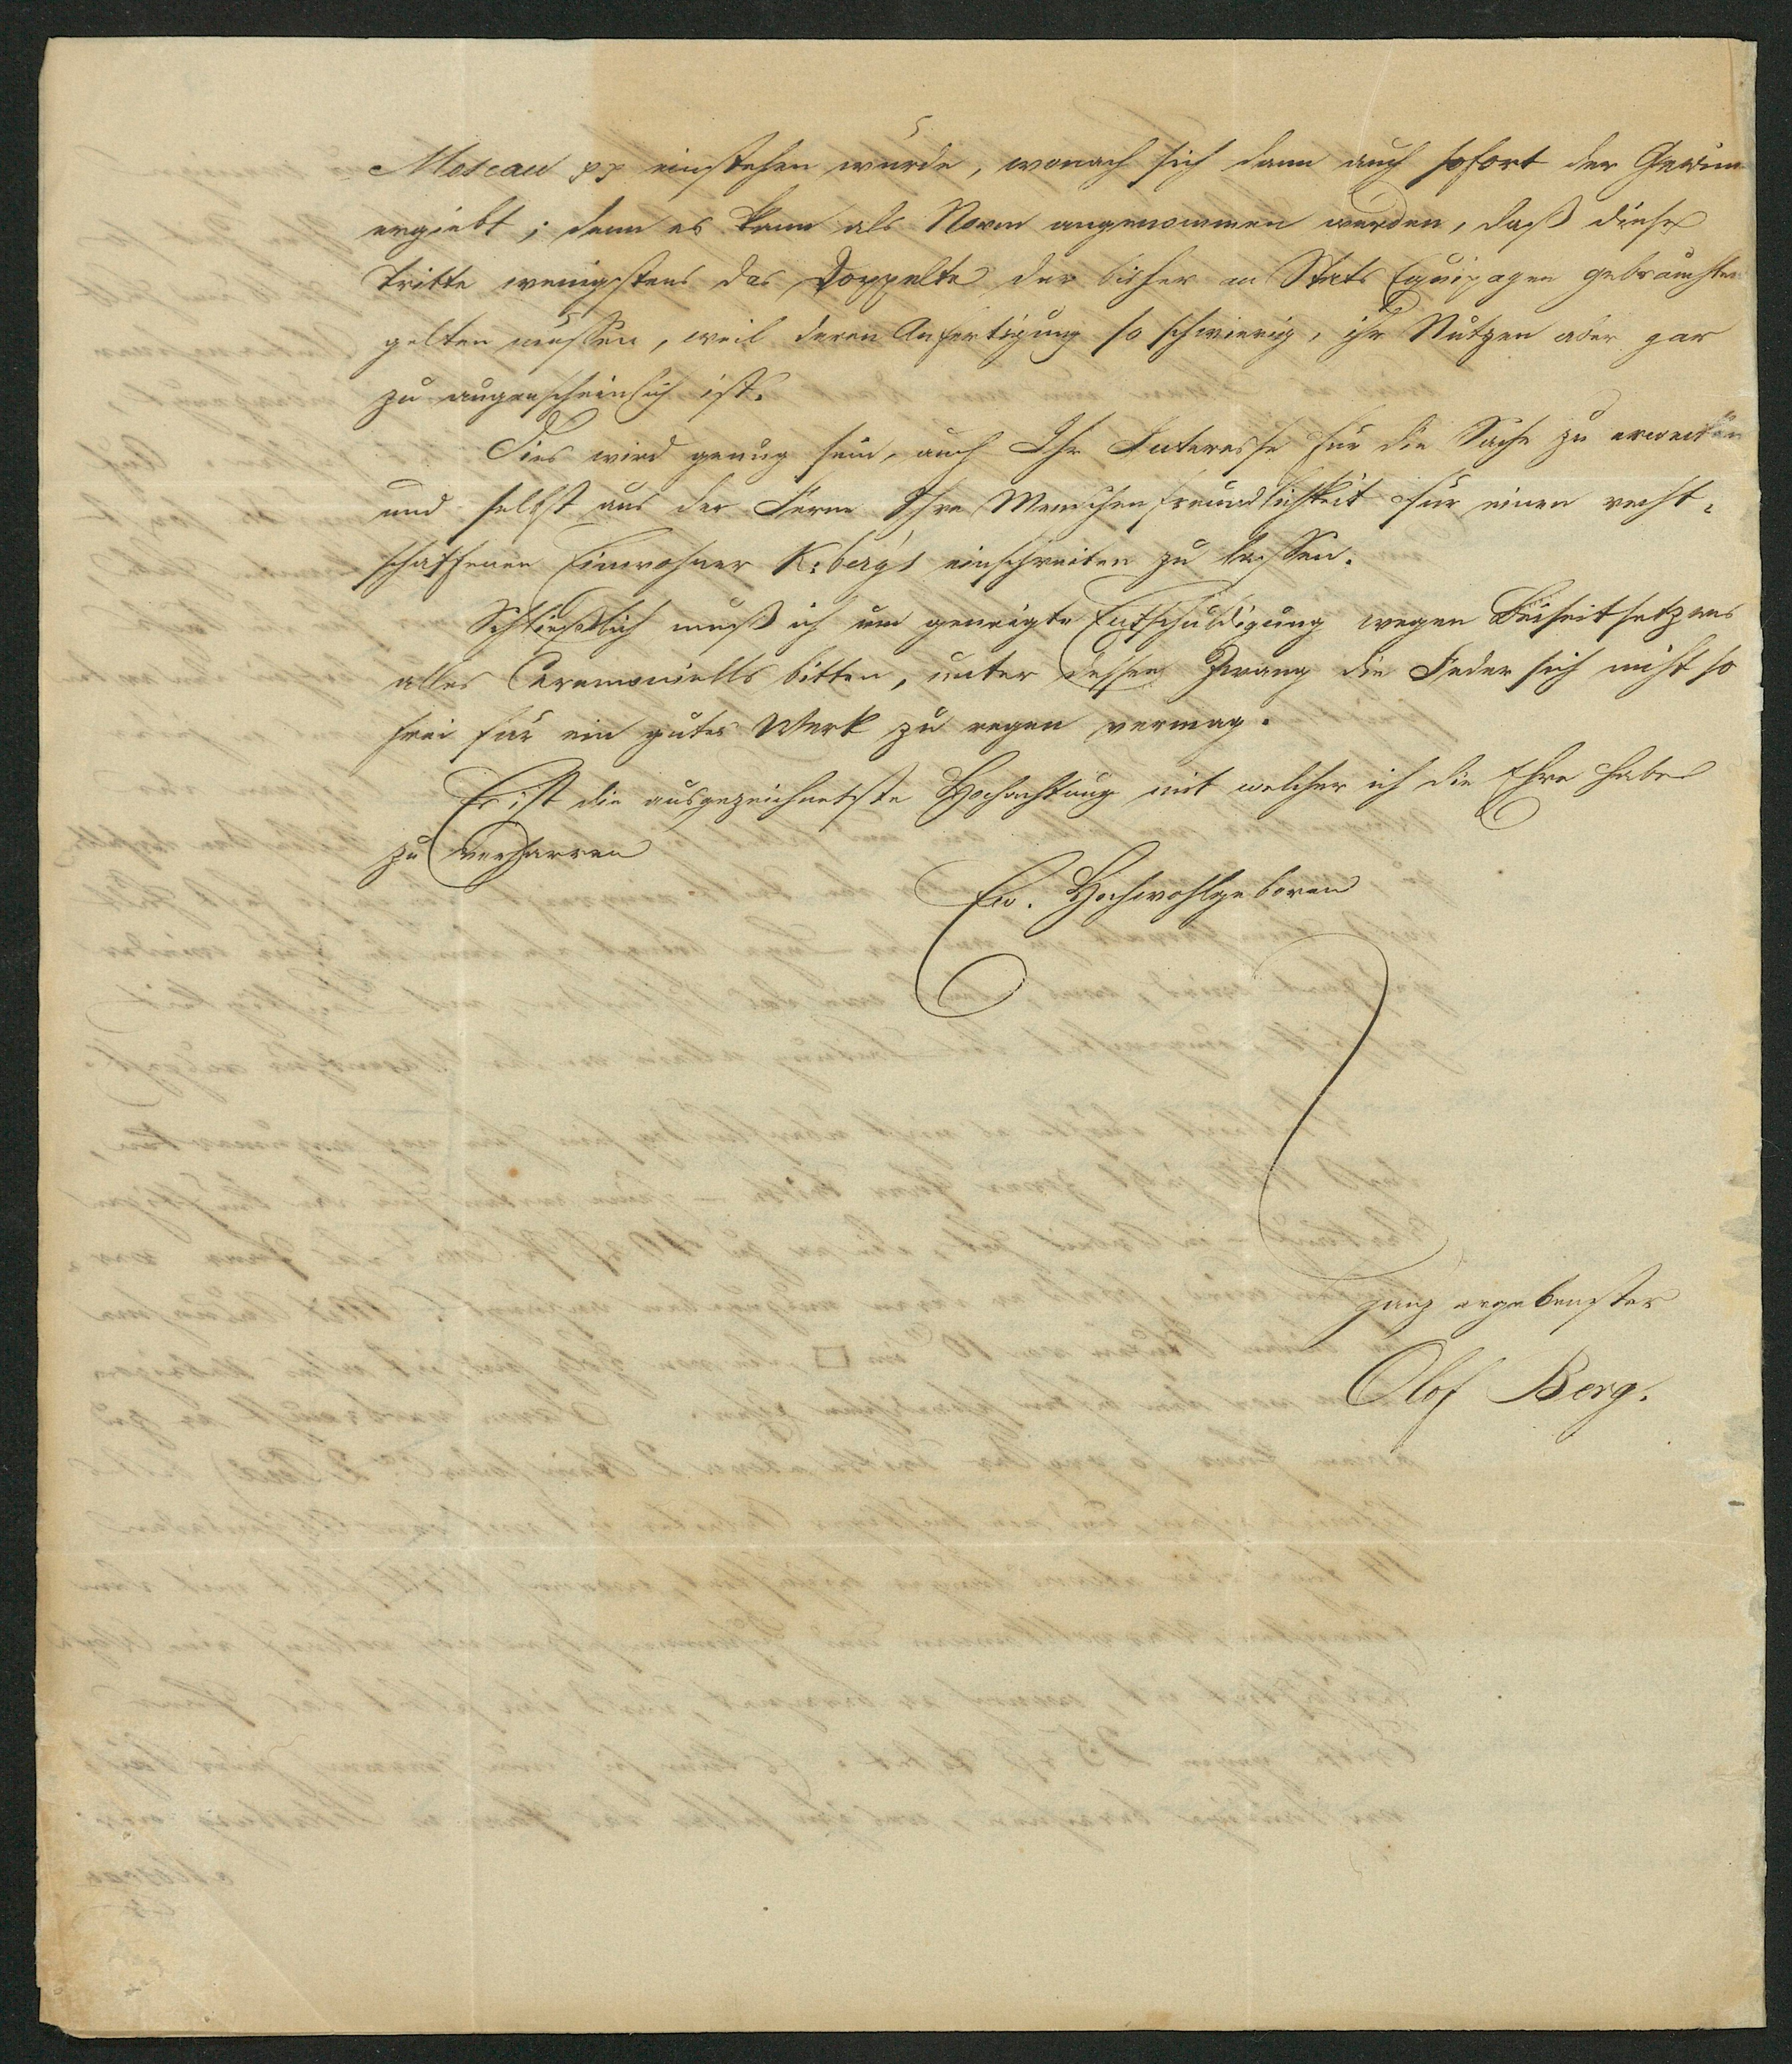 Moscau pp einstehen würde, wonach sich dann auch sofort der Gewinn
ergiebt; denn es kann als Norm angenommen werden, daß diese
Tritte wenigstens das Doppelte der bisher an Stats Equipagen gebrauchten
gelten müssen, weil deren Anfertigung so schwierig, ihr Nutzen aber gar
zu augenscheinlich ist.
Dies wird genug sein, auch Ihr Interesse für die Sache zu erwecken
und selbst aus der Ferne Ihre Menschenfreundlichkeit für einen recht-
schaffenen Einwohner K:bergs einschreiten zu lassen.
Schließlich muß ich um geneigte Entschuldigung wegen Beiseitsetzens
alles Ceremoniells bitten, unter dessen Zwang die Feder sich nicht so
frei für ein gutes Werk zu regen vermag.
Es ist die ausgezeichnetste Hochachtung mit welcher ich die Ehre habe
zu verharren
Ew. Hochwohlgeboren
ganz ergebenster
Olof Berg.